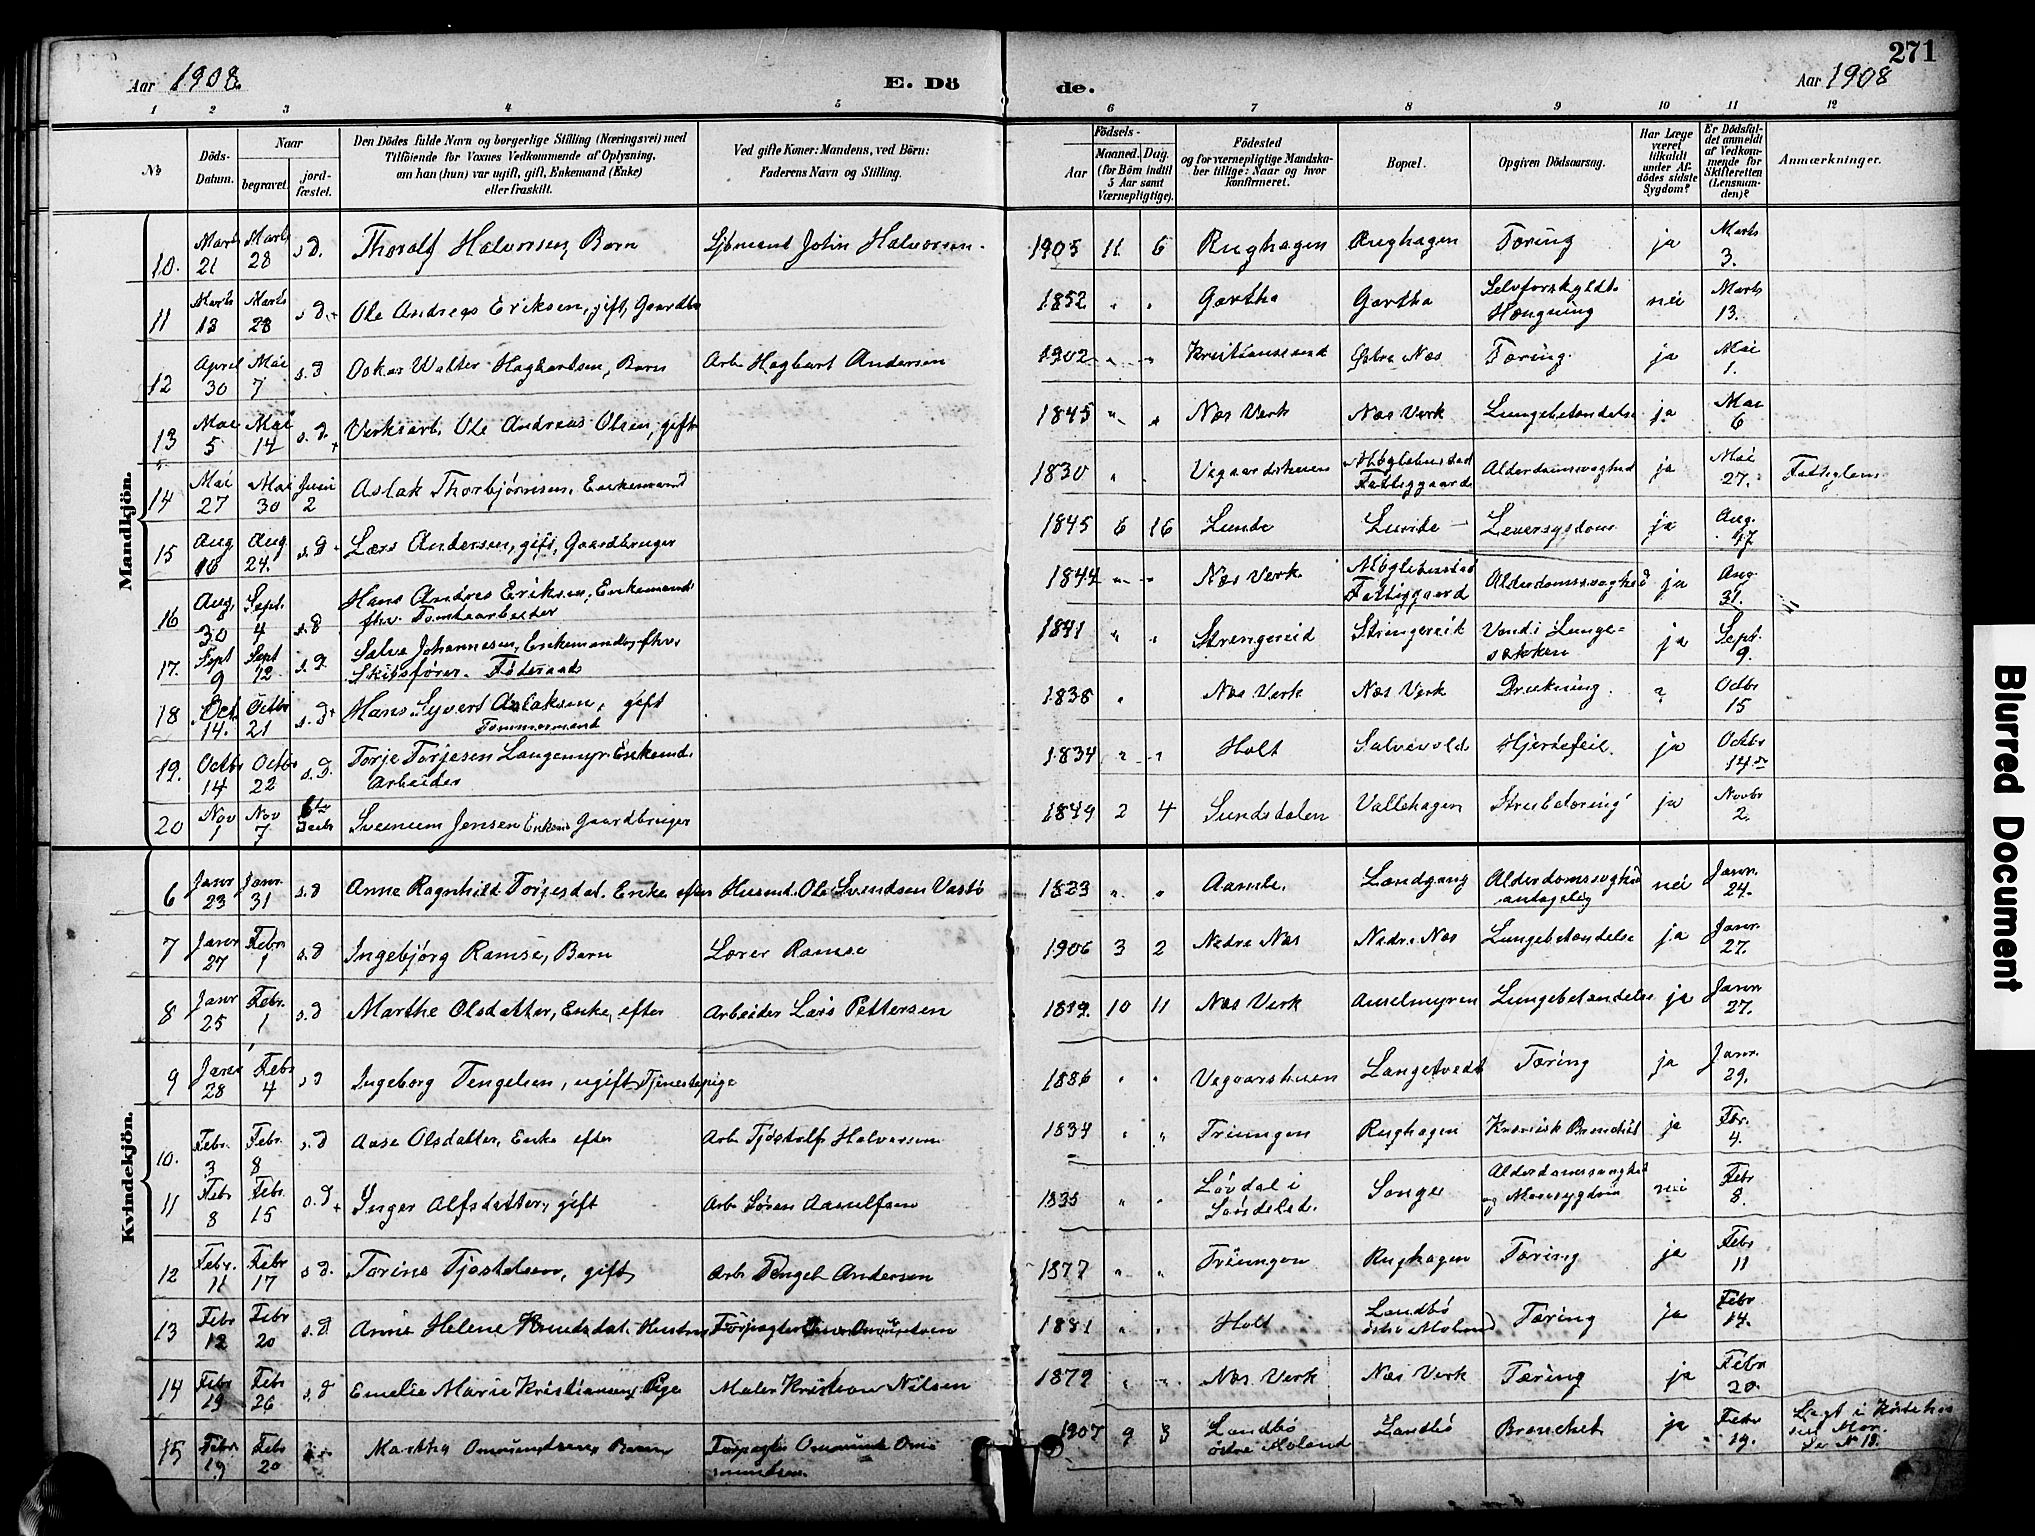 271
Aar 1908.
E. Dö
de.
Aar 1908
1 2 3 4 5 6 7 8 9 10 11 12
No
Döds-Datum.
Naar
begravet.
jord-fæstet.
Den Dödes fulde Navn og borgerlige Stilling (Næringsvei) med
Tilföiende for Voxnes Vedkommende af Oplysning,
om han (hun) var ugift, gift, Enkemand (Enke)
eller fraskilt.
Ved gifte Koner: Mandens, ved Börn:
Faderens Navn og Stilling.
Födsels-
Aar
Maaned. Dag.
(for Börn indtil
5 Aar samt
Værnepligtige).
Födested
og for værnepligtige Mandska-
ber tillige: Naar og hvor
konfirmeret.
Bopæl.
Opgiven Dödsaarsag.
Har Læge
været
tilkaldt
under Af-
dödes sidste
Sygdom?
Er Dödsfal-
det anmeldt
af Vedkom-
mende for
Skifteretten
(Lensman-
den)?
Anmærkninger.
Mandkjön.
10. Marts 21 Marts 28 s.D. Thoralf Halvorsen, Barn Sjömand John Halvorsen. 1905 11 6 Rughagen Rughagen Tæring ja Marts 3.
11 Marts 13 Marts 28 s.D. Ole Andreas Eriksen, gift, Gaardbr 1852 " " Gartha Gartha Selvforskyldt Hængning nei Marts 13.
12 April 30 Mai 7 s.D Oskar Walter Hagbartsen, Barn Arb. Hagbart Andersen 1902 " " Kristianssund Östre Næs Tæring. ja Mai 1.
13 Mai 5 Mai 14 s.D. Verksarb. Ole Andreas Olsen, gift 1845 " " Næs Verk Næs Verk Lungebetændelse ja Mai 6
14 Mai 27 Mai 30 Juni 2 Aslak Thorbjörnsen, Enkemand 1830 " " Vegaardsheien Möglebustad Fattiggaard Alderdomssvaghed ja Mai 27. Fattiglem
15 Aug 16 Aug 24. s.D. Lars Andersen, gift, Gaardbruger 1845 6 16 Lunde Lunde Leversygdom ja Aug. 17
16 Aug. 30 Sept. 4 s.D Hans Andres Eriksen, Enkemand fhv. Tomtearbeider 1844 " " Næs Verk Möglebustad Fattiggaard Alderdomssvaghed ja Aug. 31.
17. Sept 9 Sept 12 s.D. Salve Johannesen, Enkemand, fhv. Skibsförer. Föderaads 1841 " " Strengereid Strengereid Vand i Lunge-sækken ja Sept. 9.
18 Oct. 14. Octbr 21 s.D. Hans Syvert Aslaksen, gift Tømmermand 1838 " Næs Verk Næs Verk Drukning. ? Octbr 15
19. Octbr 14 Octbr 22 s.D. Torje Torjesen Langemyr Enkemd. Arbeider 1834 " " Holt Salvevold Hjertefeil. ja Octbr 14
20 Nov 1 Nov 7 Svennum Jensen Enkem. Gaardbruger 1849 2 4 Sundsdalen Vallehagen Strubetæring ja Novbr 2.
Kvindekjön.
6 Janr 23 Janr. 31 s.D Anne Ragnhild Torjesdat. Enke efter Husmd. Ole Svendsen Vastö 1823 " " Aamle. Landgang Alderdomssvaghed antagelig nei Janr. 24.
7 Janr 27 Febr 1 s.D Ingebjörg Ramse, Barn Lærer Ramse 1906 3 2 Nedre Næs Nedre Næs Lungebetændelse ja Janr. 27.
8 Janr 25 Febr. 1 s.D Marthe Olsdatter, Enke, efter Arbeider Lars Pettersen 1819. 10 11 Næs Verk Auselmyren Lungebetændelse ja Janr 27.
9 Janr 28 Febr 4 s.D Ingeborg Tengelsen, ugift Tjenestepige 1886 " " Vegaarsheien Langetvedt Tæring ja Janr. 29.
10. Febr. 3 Febr. 8 s.D Aase Olsdatter, Enke efter Arb. Tjöstolf Halvorsen 1834 " " Triungen Rughagen Kronisk Bronchit ja Fbr. 4.
11 Febr 8 Febr. 15 s.D Inger Alfsdatter, gift Arb. Sören Aanulfsen 1835 " " Lövdal i Söndeled. Songe Alderdomssvaghed og Mavesygdom nei Febr 8.
12 Febr. 11 Febr 17 s.D. Torine Tjostelsen, gift Arb. Tengel Andersen 1877 " " Triungen Rughagen Tæring ja Febr 11
13 Febr 12 Febr 20 s.D Anne Helene Knudsdat. Hustru Forpagter 1881 " " Holt Landbö östre Moland Tæring ja Febr 14.
14 Febr 19 Febr 26 s.D Emelie Marie Kristiansen, Pige Maler Kristian Nilsen 1879 " " Næs Verk Næs Verk Tæring ja Febr 20.
15 Febr 19 Febr 20 Martha Omundsen, Barn Forpagter Omund Om-mundsen. 1907 9 3 Landbö östre Moland Landbö Bronchit ja Febr 19. Lagt i Kiste hos sin Mor. Se N 13.
Blurred Document